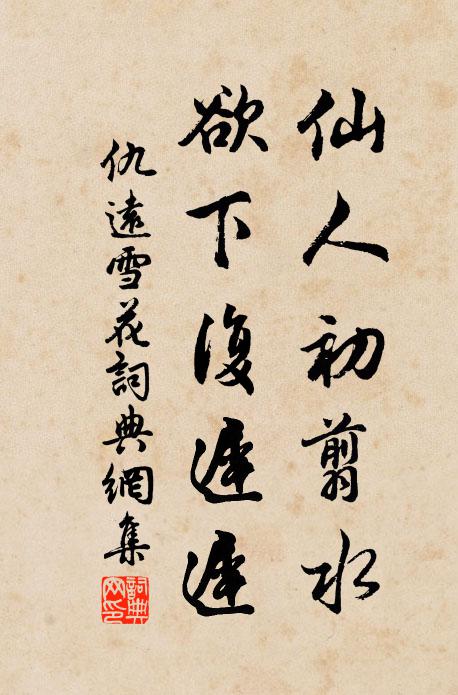 仙人初翦水
欲下復遲遲
仇遠雪花詞典網集
詞典網印